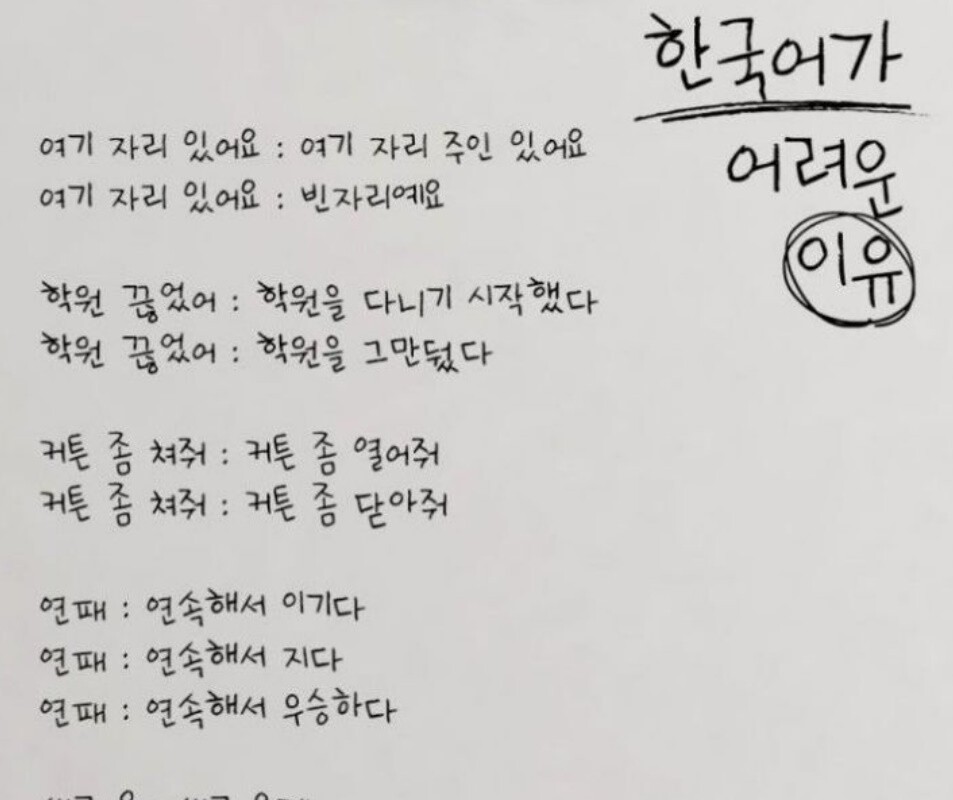 한국어가
어려운
이유
여기 자리 있어요 : 여기 자리 주인 있어요
여기 자리 있어요 : 빈자리예요
학원 끊었어 : 학원을 다니기 시작했다
학원 끊었어 : 학원을 그만뒀다
커튼 좀 쳐줘 : 커튼 좀 열어줘
커튼 좀 쳐줘 : 커튼 좀 닫아줘
연패 : 연속해서 이기다
연패 : 연속해서 지다
연패 : 연속해서 우승하다